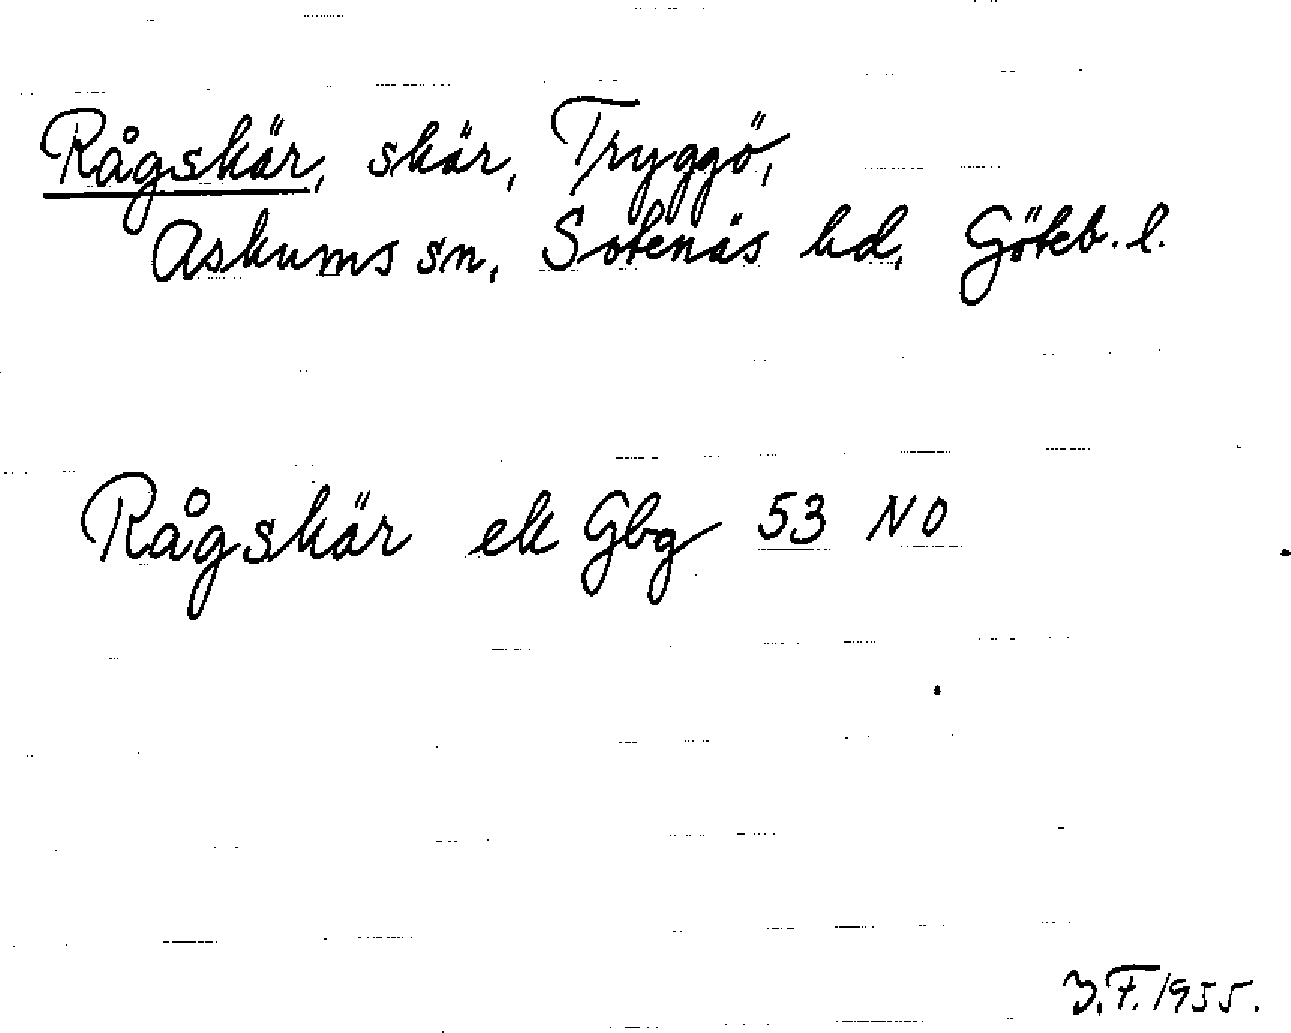 Rågskär, skär, Tryggö,
Askums sn, Sotenäs hd, Göteb. l.
Rågskär ek Gbg 53 NO
F. 1955.